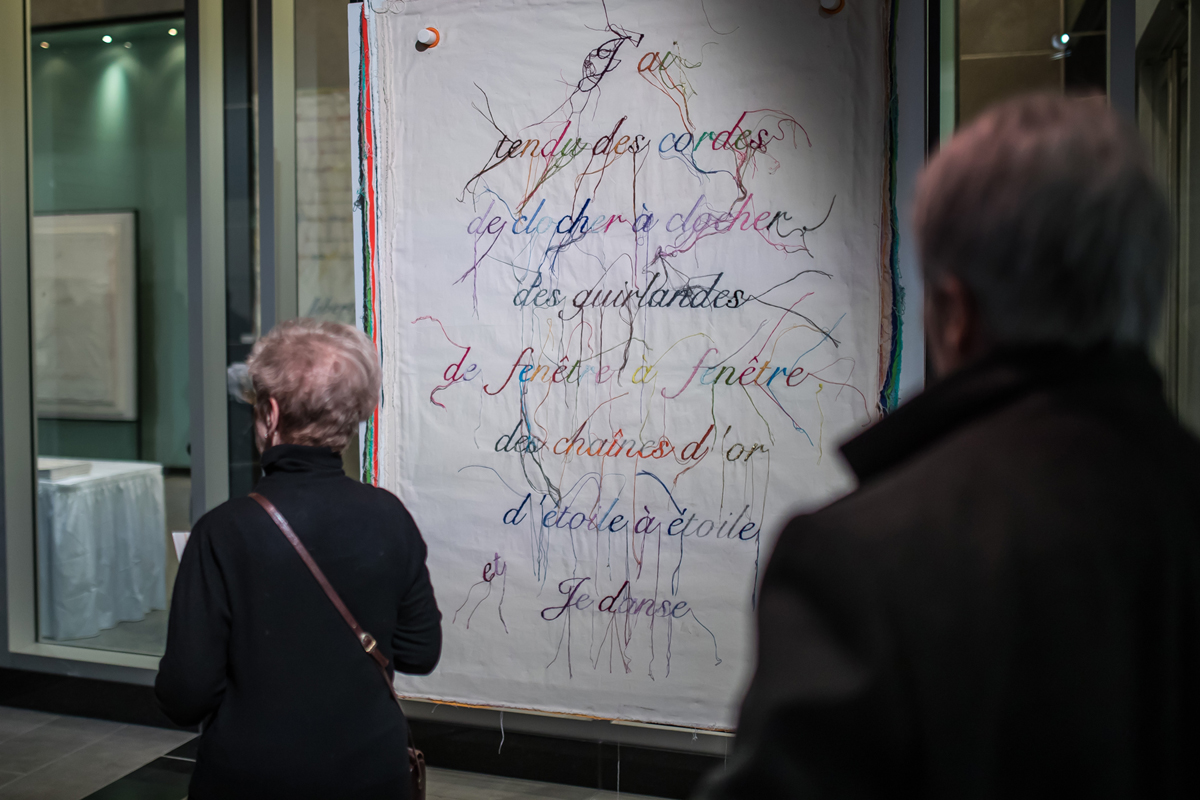 J'ai
tendu des cordes
de clocher à clocher,
des guirlandes
de fenêtre à fenêtre,
des chaînes d'or
d'étoile à étoile,
et
Je danse